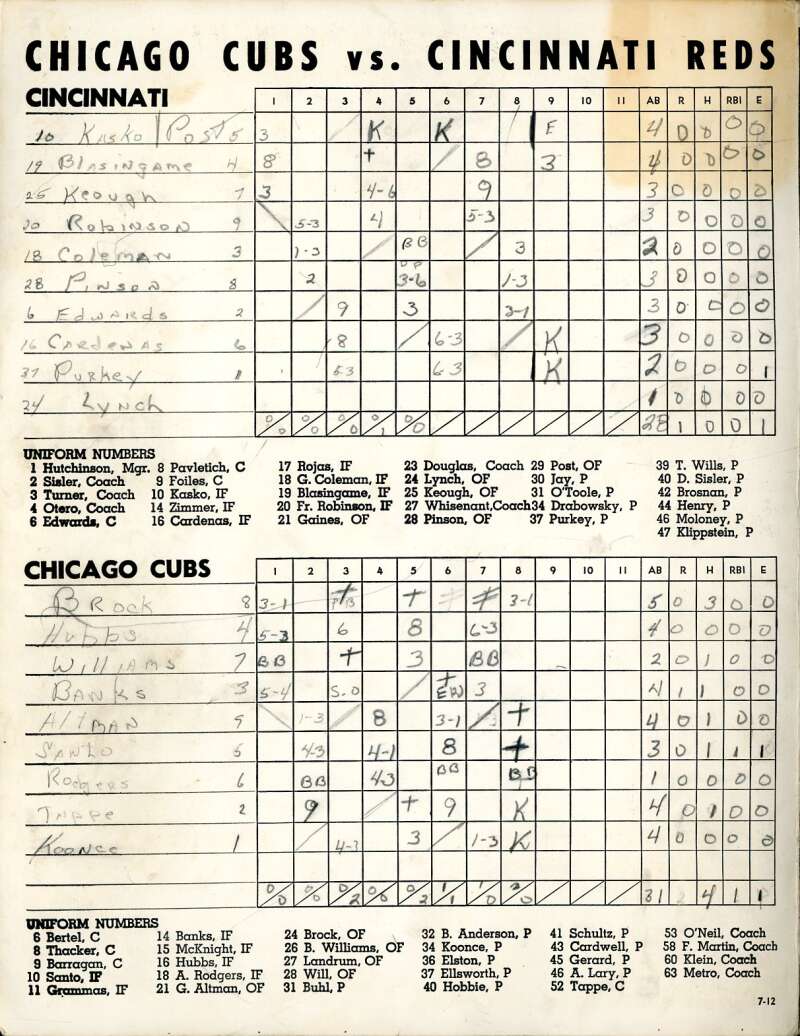 CHICAGO CUBS vs. CINCINNATI REDS
CINCINNATI 1 2 3 4 5 6 7 8 9 10 11 AB R H RBI E
10 Kasko / Posts 5 3 K K F 4 0 0 0 0
19 Blasingame 4 8 + / 8 3 4 0 0 0 0
25 Keough 7 3 4-6 9 3 0 0 0 0
20 Robinson 9 5-3 4 5-3 3 0 0 0 0
18 Coleman 3 1-3 BB 3 2 0 0 0 0
28 Pinson 8 2 3-6 1-3 3 0 0 0 0
6 Edwards 2 9 3 3-1 3 0 0 0 0
16 Cardenas 6 8 6-3 K 3 0 0 0 0
37 Purkey 1 5-3 6-3 K 2 0 0 0 1
24 Lynch 1 0 0 0 0
0/0 0/0 0/0 0/1 0/0 28 1 0 0 1
UNIFORM NUMBERS
1 Hutchinson, Mgr. 8 Pavletich, C 17 Rojas, IF 23 Douglas, Coach 29 Post, OF 39 T. Wills, P
2 Sisler, Coach 9 Foiles, C 18 G. Coleman, IF 24 Lynch, OF 30 Jay, P 40 D. Sisler, P
3 Turner, Coach 10 Kasko, IF 19 Blasingame, IF 25 Keough, OF 31 O'Toole, P 42 Brosnan, P
4 Otero, Coach 14 Zimmer, IF 20 Fr. Robinson, IF 27 Whisenant,Coach 34 Drabowsky, P 44 Henry, P
6 Edwards, C 16 Cardenas, IF 21 Gaines, OF 28 Pinson, OF 37 Purkey, P 46 Moloney, P
47 Klippstein, P
CHICAGO CUBS 1 2 3 4 5 6 7 8 9 10 11 AB R H RBI E
Brock 8 3-1 + + 3-1 5 0 3 0 0
Hubbs 4 5-3 6 8 6-3 4 0 0 0 0
Williams 7 BB + 3 BB 2 0 1 0 0
Banks 3 5-4 S.O + 3 4 1 1 0 0
Altman 9 1-3 8 3-1 + 4 0 1 0 0
Santo 5 4-3 4-1 8 + 3 0 1 1 1
Rodgers 6 BB 4-3 BB BB 1 0 0 0 0
Tappe 2 9 + 9 K 4 0 1 0 0
Koonce 1 4-3 3 1-3 K 4 0 0 0 0
0/0 0/0 0/2 0/0 0/2 1/1 1/0 31 4 1 1
UNIFORM NUMBERS
6 Bertel, C 14 Banks, IF 24 Brock, OF 32 B. Anderson, P 41 Schultz, P 53 O'Neil, Coach
8 Thacker, C 15 McKnight, IF 26 B. Williams, OF 34 Koonce, P 43 Cardwell, P 58 F. Martin, Coach
9 Barragan, C 16 Hubbs, IF 27 Landrum, OF 36 Elston, P 45 Gerard, P 60 Klein, Coach
10 Santo, IF 18 A. Rodgers, IF 28 Will, OF 37 Ellsworth, P 46 A. Lary, P 63 Metro, Coach
11 Grammas, IF 21 G. Altman, OF 31 Buhl, P 40 Hobbie, P 52 Tappe, C
7-12